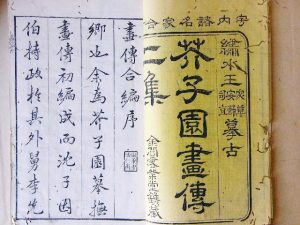 宇内諸名家合
繡水王
安節
摹古
芥子園畫傳
二集
畫傳合編序
鄉也余為芥子園摹撫
畫傳初編成而沈子因
伯持政於其外舅李先